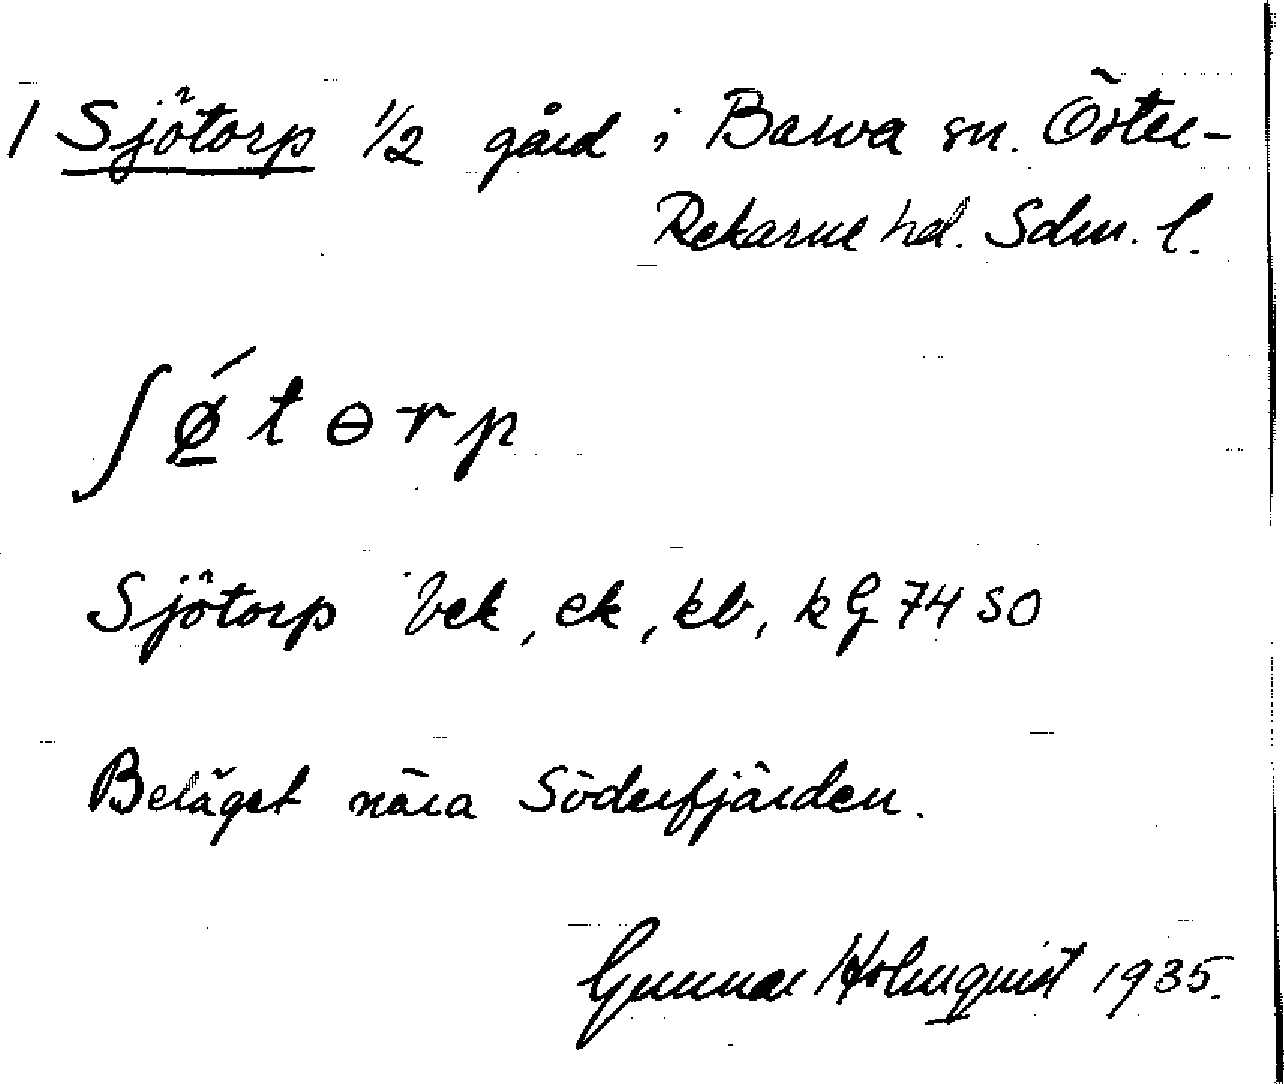 1 Sjötorp 1/2 gård i Barva sn. Öster-
Rekarne hd. Sdm. l.
ʃǿ̱tɵrp
Sjötorp bek, ek, kb, kG 74 SO
Beläget nära Söderfjärden.
Gunnar Holmquist 1935.